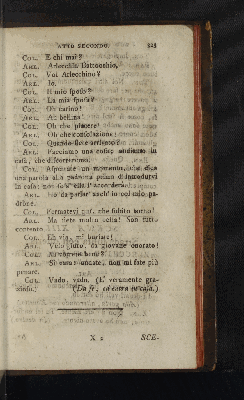 ATTO SECONDO. 323
COL. E chi mai?
ARL. Arlecchin Battocchio.
COL. Voi Arlecchino?
ARL. Io.
COL. Il mio sposo?
ARL. La mia sposa?
COL. Oh carino!
ARL. Ah bellina!
COL. Oh che piacere!
ARL. Oh che consolazione!
COL. Quando siete arrivato?
ARL. Facciamo una cosa; andiamo in
casa, che discorreremo.
COL. Aspettate un momento, che dica
una parola alla padrona prima di introdurvi
in casa; non so s' ella l' accorderà.
ARL. Ho da parlar anch' io col mio pa-
drone.
COL. Fermatevi qui, che subito torno!
ARL. Ma siete molto bella! Son tutto
contento.
COL. Eh via, mi burlate!
ARL. Ve lo giuro, da giovane onorato!
COL. Mi vorrete bene?
ARL. Sì cara; andate, non mi fate più
penare.
COL. Vado, vado. (E' veramente gra-
zioso.) (Da se, ed entra in casa.)
X 2 SCE-